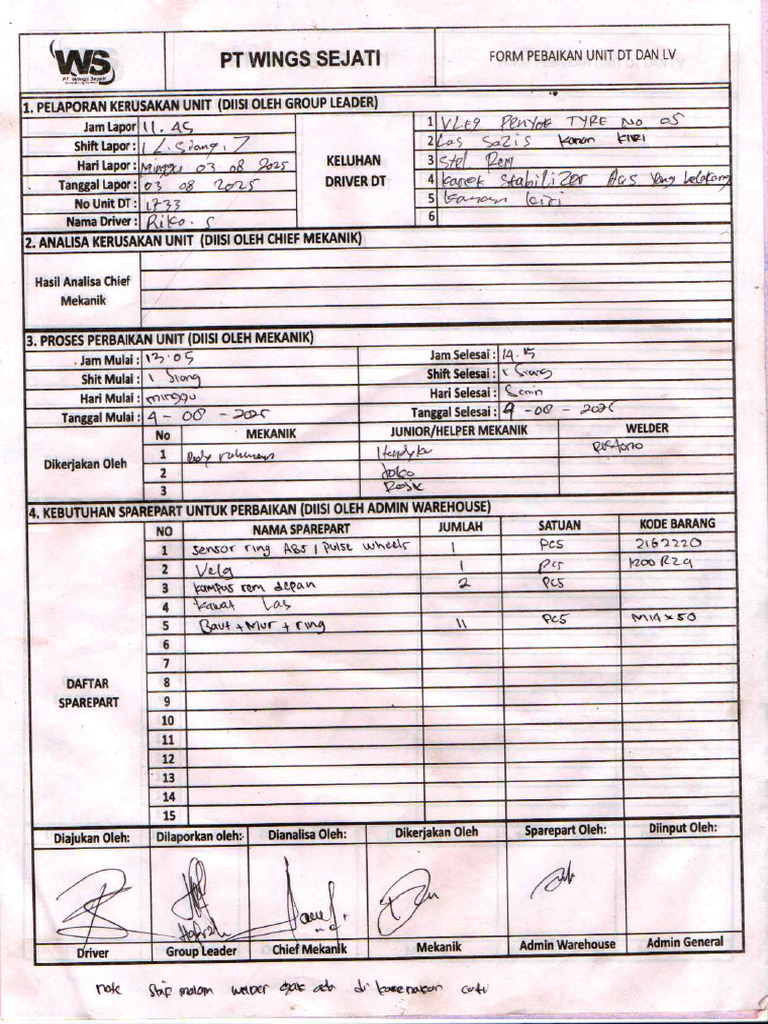 WS
PT Wings Sejati
PT WINGS SEJATI
FORM PEBAIKAN UNIT DT DAN LV
1. PELAPORAN KERUSAKAN UNIT (DIISI OLEH GROUP LEADER)
Jam Lapor 11.45
Shift Lapor : Siang
Hari Lapor : Minggu 03 08 2025
Tanggal Lapor : 03 08 2025
No Unit DT : 1733
Nama Driver : Riko. S
KELUHAN DRIVER DT
1 VLEG PenYok TYRE No 05
2 Las Sazis kanan kiri
3 Stel Rem
4 karet Stabilizer Aas yang belakang
5 kanan kiri
6
2. ANALISA KERUSAKAN UNIT (DIISI OLEH CHIEF MEKANIK)
Hasil Analisa Chief Mekanik
3. PROSES PERBAIKAN UNIT (DIISI OLEH MEKANIK)
Jam Mulai : 13.05
Jam Selesai : 14.15
Shit Mulai : 1 Siang
Shift Selesai : 1 Siang
Hari Mulai : minggu
Hari Selesai : Senin
Tanggal Mulai : 4 - 08 - 2025
Tanggal Selesai : 4 - 08 - 2025
Dikerjakan Oleh
No MEKANIK JUNIOR/HELPER MEKANIK WELDER
1 rahman Hendyka Rustono
2 Joko
3 Rosik
4. KEBUTUHAN SPAREPART UNTUK PERBAIKAN (DIISI OLEH ADMIN WAREHOUSE)
DAFTAR SPAREPART
NO NAMA SPAREPART JUMLAH SATUAN KODE BARANG
1 sensor ring ABS / Pulse wheels 1 PCS 2162220
2 Velg 1 pcs 1200 R24
3 kampus rem depan 2 PCS
4 kawat Las
5 Baut + Mur + ring 11 PCS M14 x 50
6
7
8
9
10
11
12
13
14
15
Diajukan Oleh: Dilaporkan oleh: Dianalisa Oleh: Dikerjakan Oleh Sparepart Oleh: Diinput Oleh:
Driver Group Leader Chief Mekanik Mekanik Admin Warehouse Admin General
note Sip malam welper gak ada di karenakan cuti